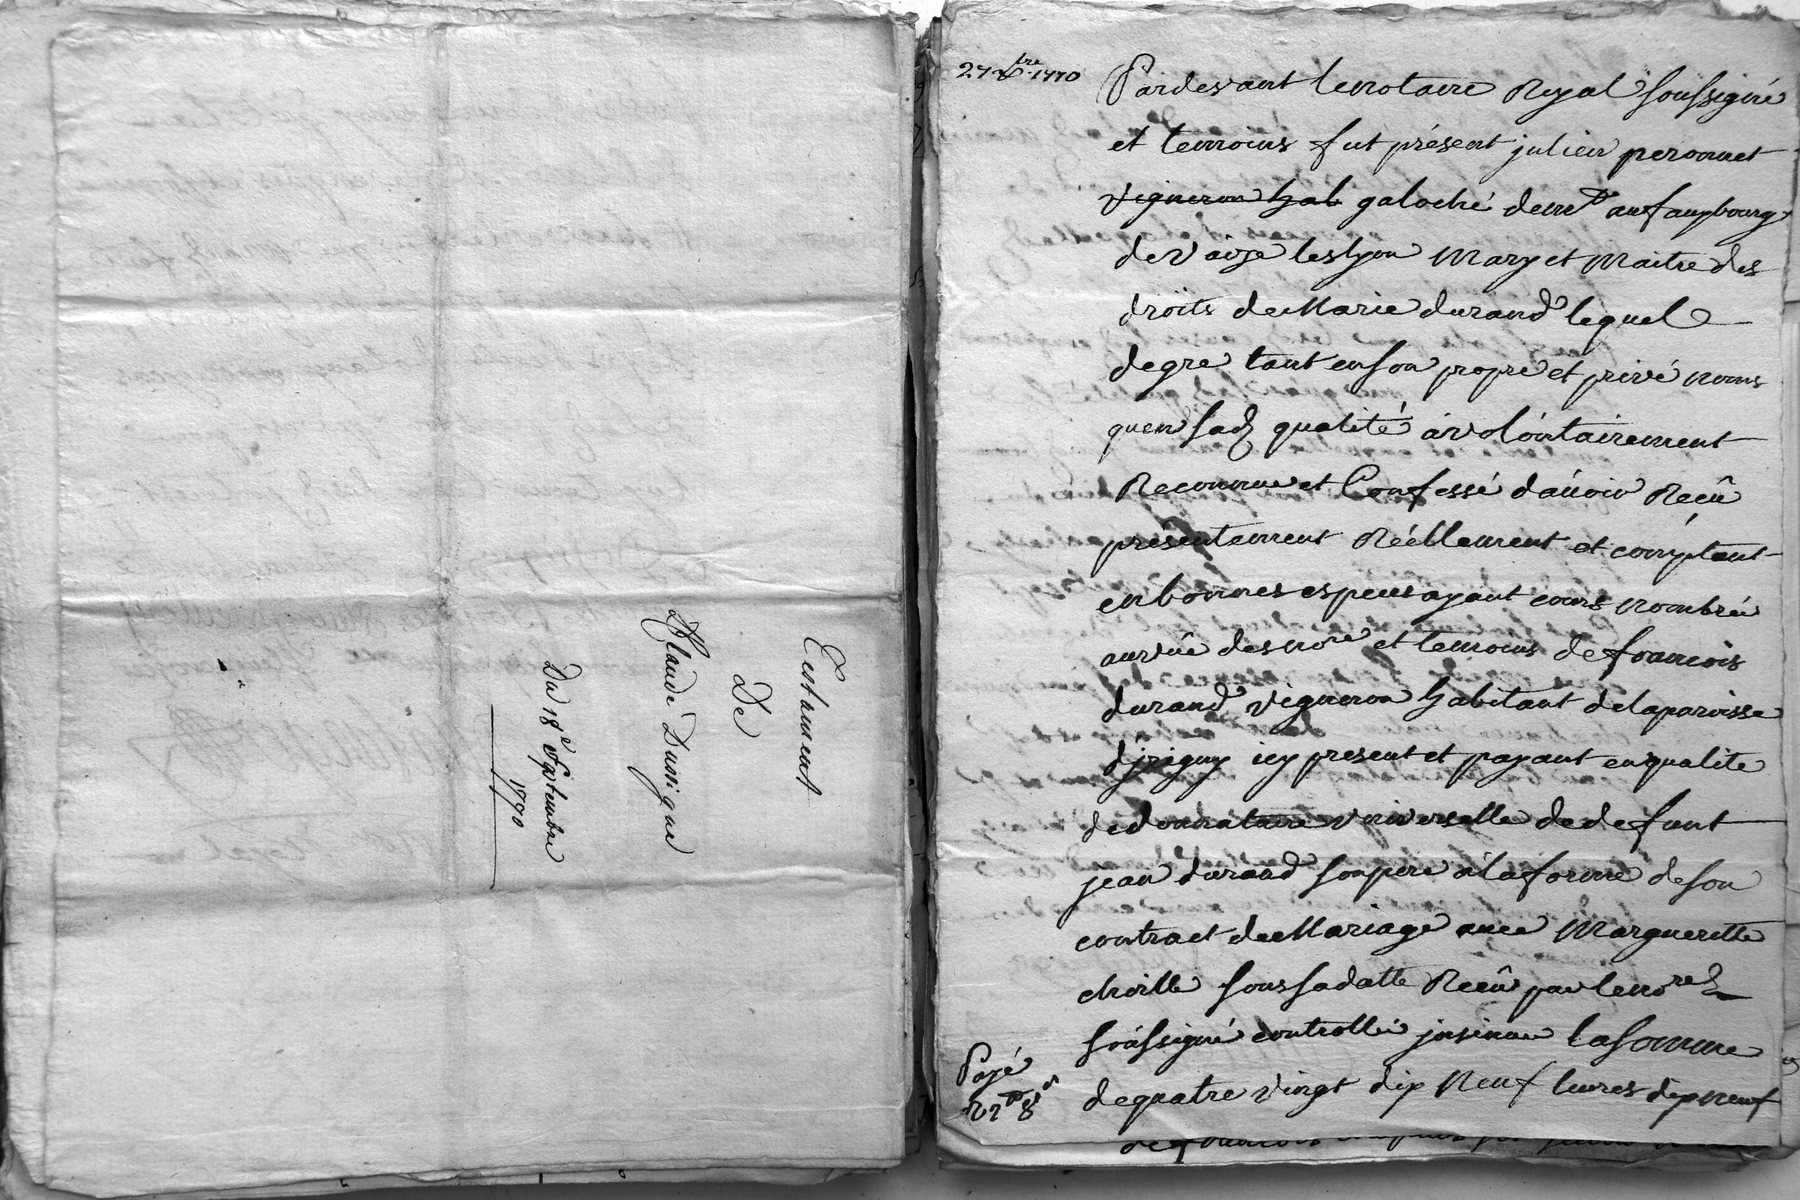 Testament
De
Claude Dumique
Du 18e Septembre
1770
27 8bre 1770
Pardevant le notaire Royal soussigné
et temoins fut présent julien peronnet
vigneron hab galoché demt au faupbourg
de Vaize les lyon Mary et Maitre des
droits de Marie durand lequel
de gre tant en son propre et privé noms
quen sad qualité a volontairement
Reconnu et Confessé d'avoir Reçû
présentement Réellement et comptant
en bonnes especes ayant cours nombrée
au vûe des nore et temoins de francois
durand vigneron habitant de la paroisse
d'jrigny icy present et payant en qualite
de donnataire universelle de defunt
jean durand son pere a la forme de son
contract de Mariage avec Marguerette
choille sous sa datte Reçû par le nore
soussigné controllé jnsinué la somme
de quatre vingt dix Neuf livres dix neuf
Payé